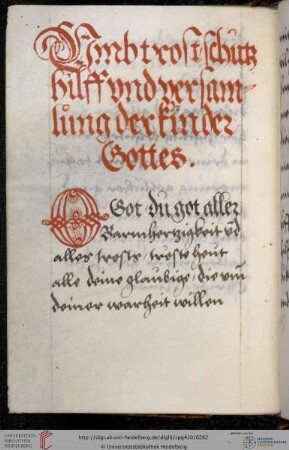 Vmb trost schutz
hilff vnd versam-
lung der kinder
Gottes.
O Got du got aller
Barmhertzigkeit vd
alles trosts / troste heut
alle deine glaubige / die vm
deiner warheit willen
UNIVERSITÄTS-
BIBLIOTHEK
HEIDELBERG
http://digi.ub.uni-heidelberg.de/diglit/cpg450/0262
© Universitätsbibliothek Heidelberg